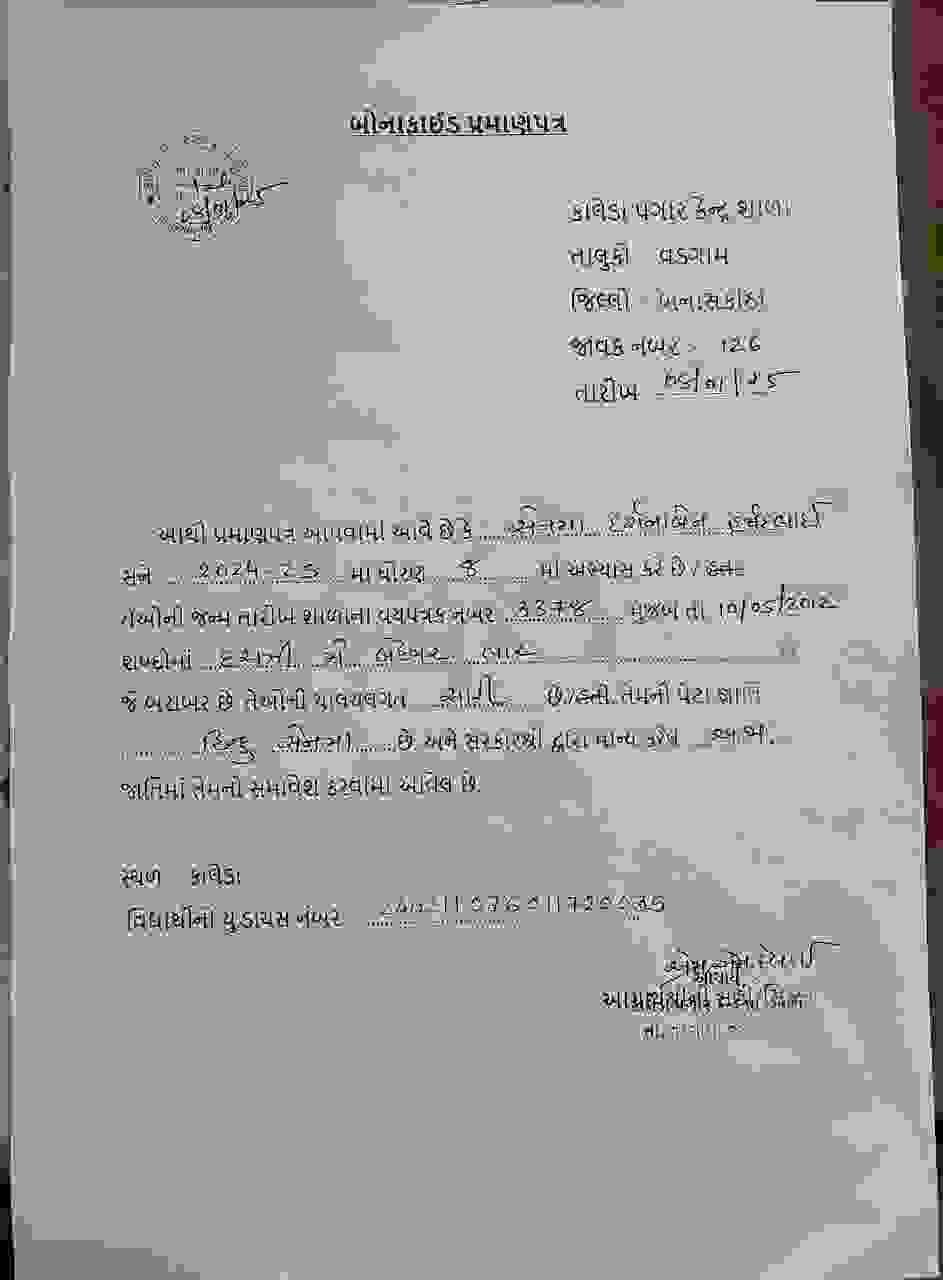 બોનાફાઈડ પ્રમાણપત્ર
કાલેડા પગાર કેન્દ્ર શાળા
તાલુકો વડગામ
જિલ્લો બનાસકાંઠા
જાવક નંબર :- ૧૨૬
તારીખ
આથી પ્રમાણપત્ર આપવામાં આવે છે કે સેનમા દર્શનાબેન
સને ૨૦૨૪-૨૫ મા ધોરણ ૮ માં અભ્યાસ કરે છે/હતા
તેઓની જન્મ તારીખ શાળાના વયપત્રક નંબર ૩૩૭૪ મુજબ તા ૧૦/૦૬/૨૦૧૨
શબ્દોમાં દસમી બે હજાર બાર
જે બરાબર છે તેઓની ચાલચલગત સારી છે/હતી. તેમની પેટા જ્ઞાતિ
હિન્દુ સેનમા છે અને સરકારશ્રી દ્વારા માન્ય કરેલ અ.જા.
જાતિમાં તેમનો સમાવેશ કરવામાં આવેલ છે.
સ્થળ કાલેડા
વિદ્યાર્થીનો યુ.ડાયસ નંબર
આચાર્ય